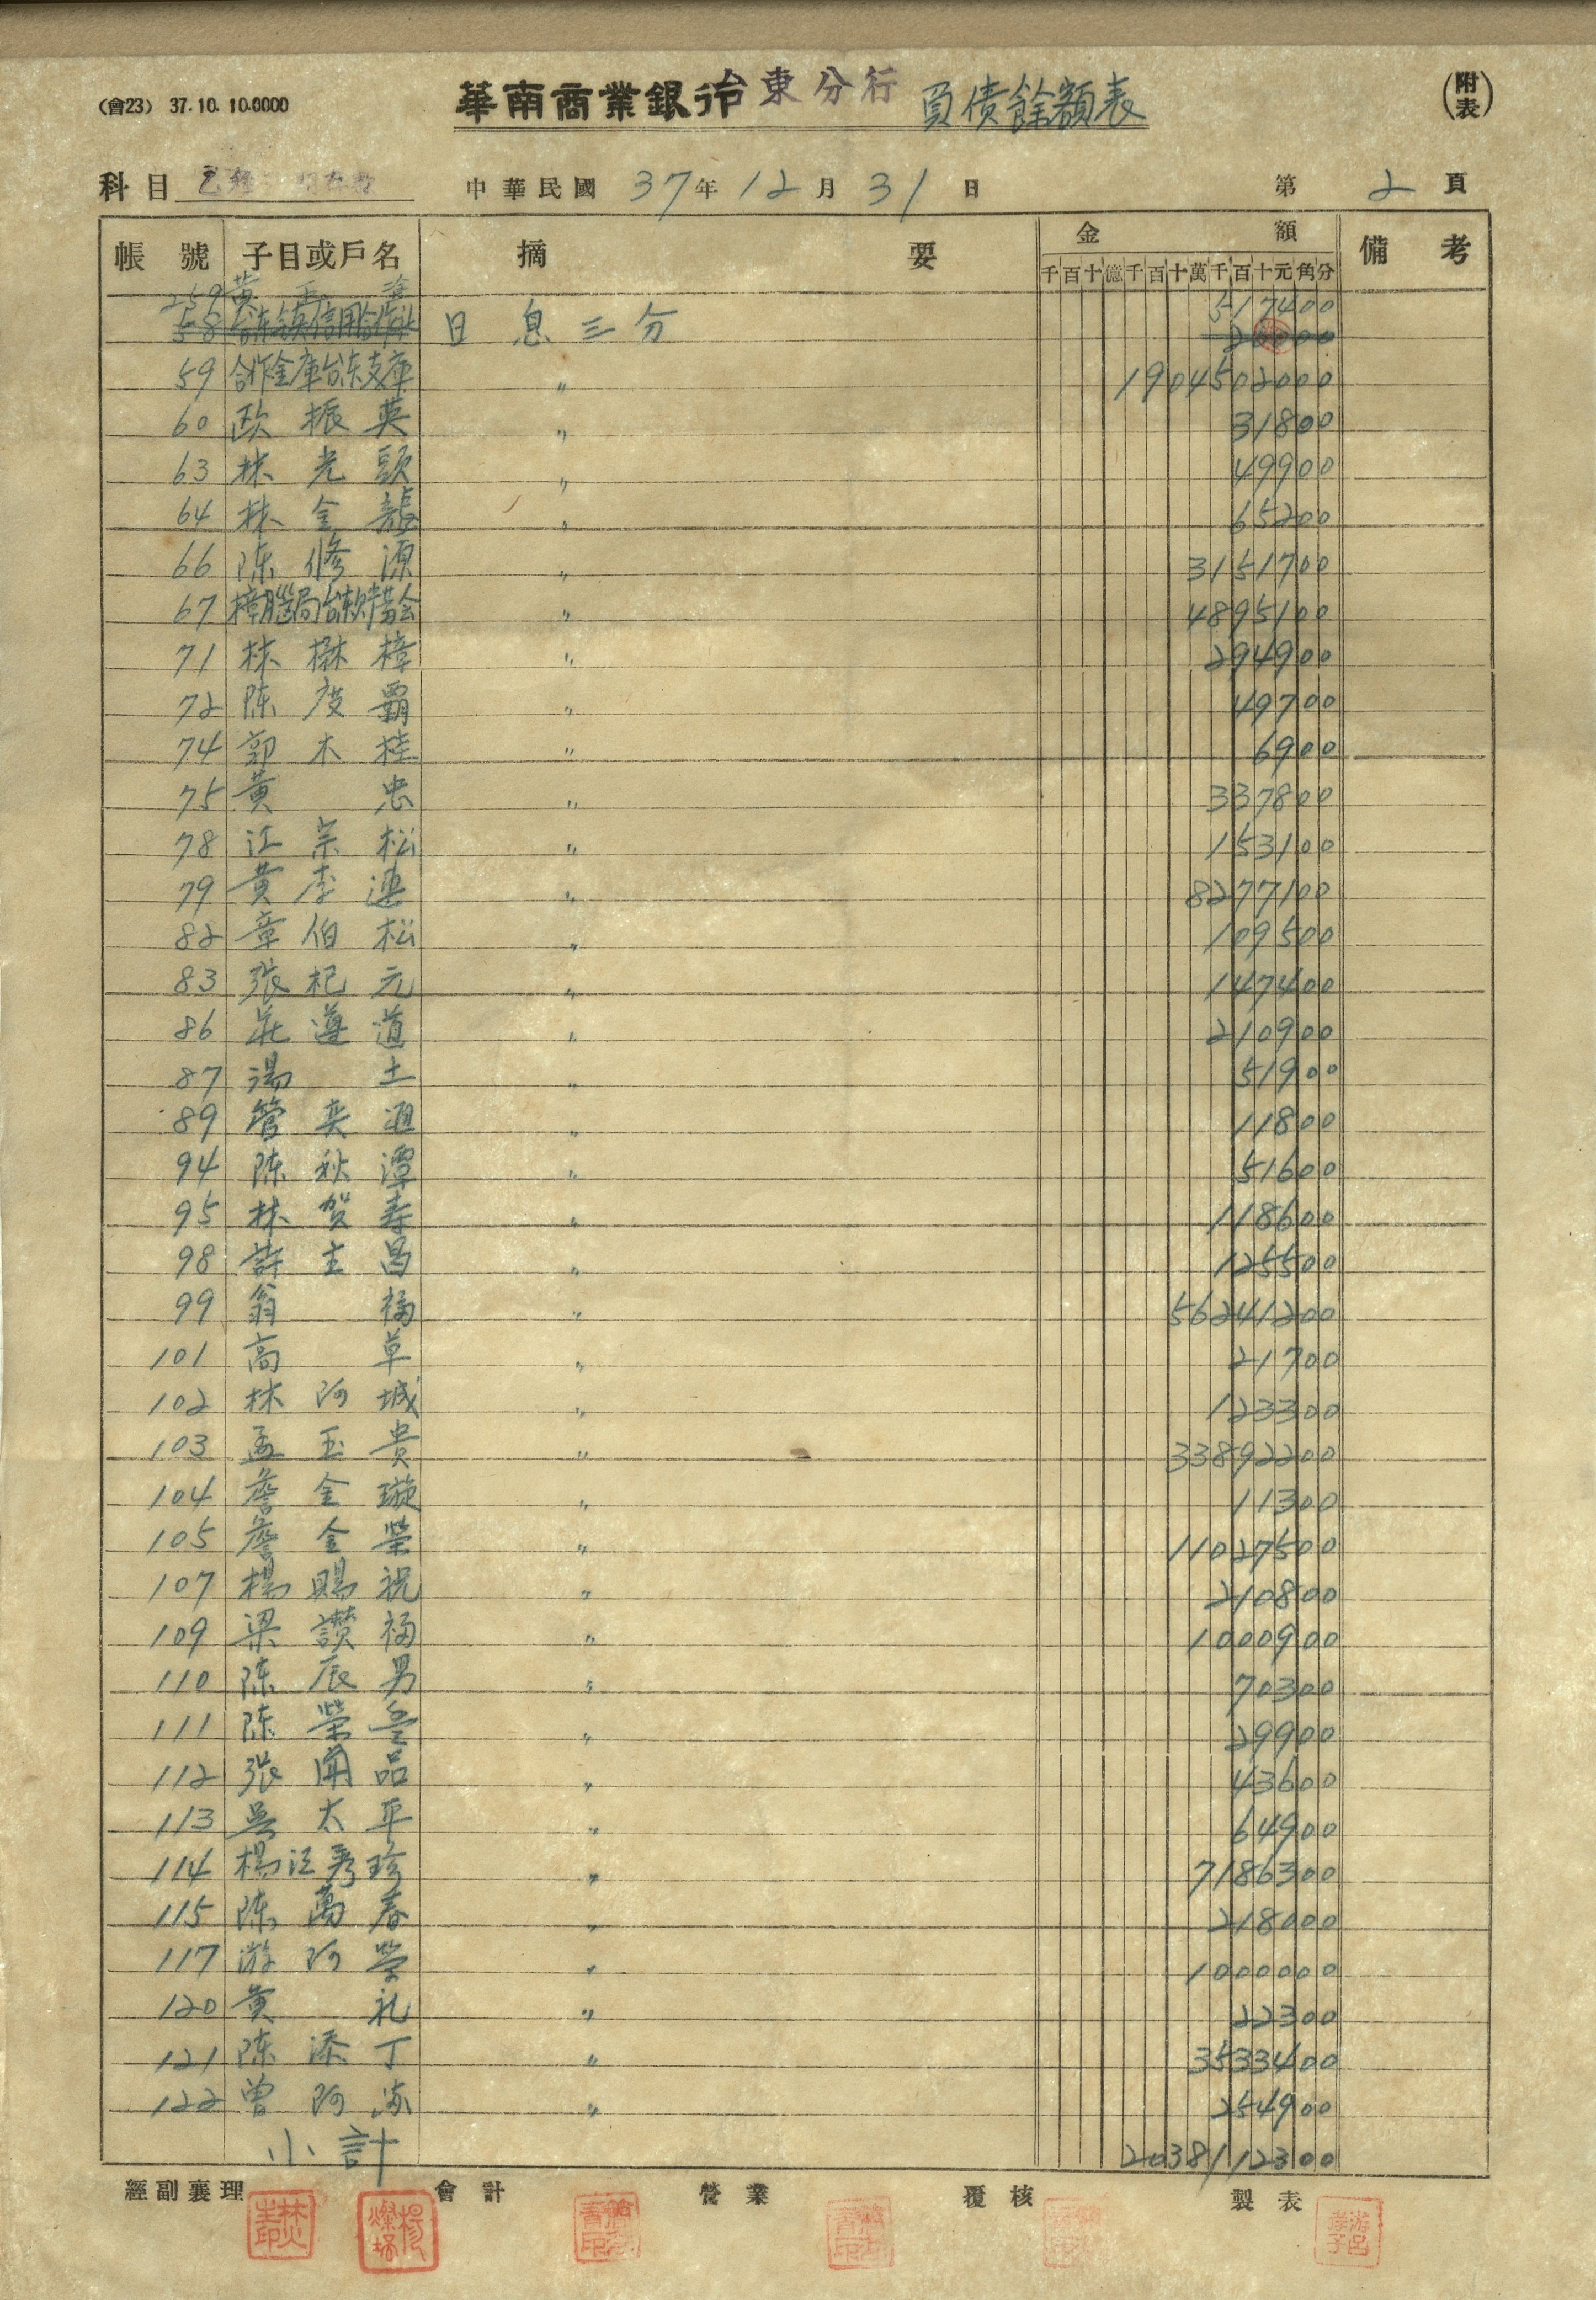 (會23) 37.10.10.0000
華南商業銀行台東分行 負債餘額表
(附表)
科目 乙種
中華民國 37年 12月 31日
第 2 頁
帳號 子目或戶名 摘要 金額 備考
千百十億千百十萬千百十元角分
259 黃玉 517400
58 台东鎮信用合作社 日息三分 20000
59 合作金庫台东支庫 〃 1904502000
60 欧振英 〃 31800
63 林光頭 〃 49900
64 林全 〃 65200
66 陈修源 〃 3151700
67 樟腦局台东 会 〃 4895100
71 林樹樟 〃 294900
72 陈度霸 〃 49700
74 郭木桂 〃 6900
75 黃忠 〃 337800
78 江宗松 〃 153100
79 黃李 〃 8277100
82 章伯松 〃 109500
83 張杞元 〃 147400
86 莊遵道 〃 210900
87 湯土 〃 51900
89 管奕通 〃 11800
94 陈秋潭 〃 51600
95 林贺寿 〃 118600
98 許主昌 〃 125500
99 翁福 〃 56241200
101 高草 〃 21700
102 林阿城 〃 123300
103 孟玉贵 〃 33892200
104 詹金璇 〃 11300
105 詹金榮 〃 11027500
107 楊賜祝 〃 210800
109 梁讚福 〃 1000900
110 陈辰男 〃 70300
111 陈榮 〃 29900
112 張開品 〃 43600
113 吳太平 〃 64900
114 楊江秀珍 〃 7186300
115 陈萬春 〃 218000
117 游阿榮 〃 1000000
120 黃礼 〃 22300
121 陈添丁 〃 3533400
122 曾阿 〃 254900
小計 2038112300
經副襄理 會計 營業 覆核 製表